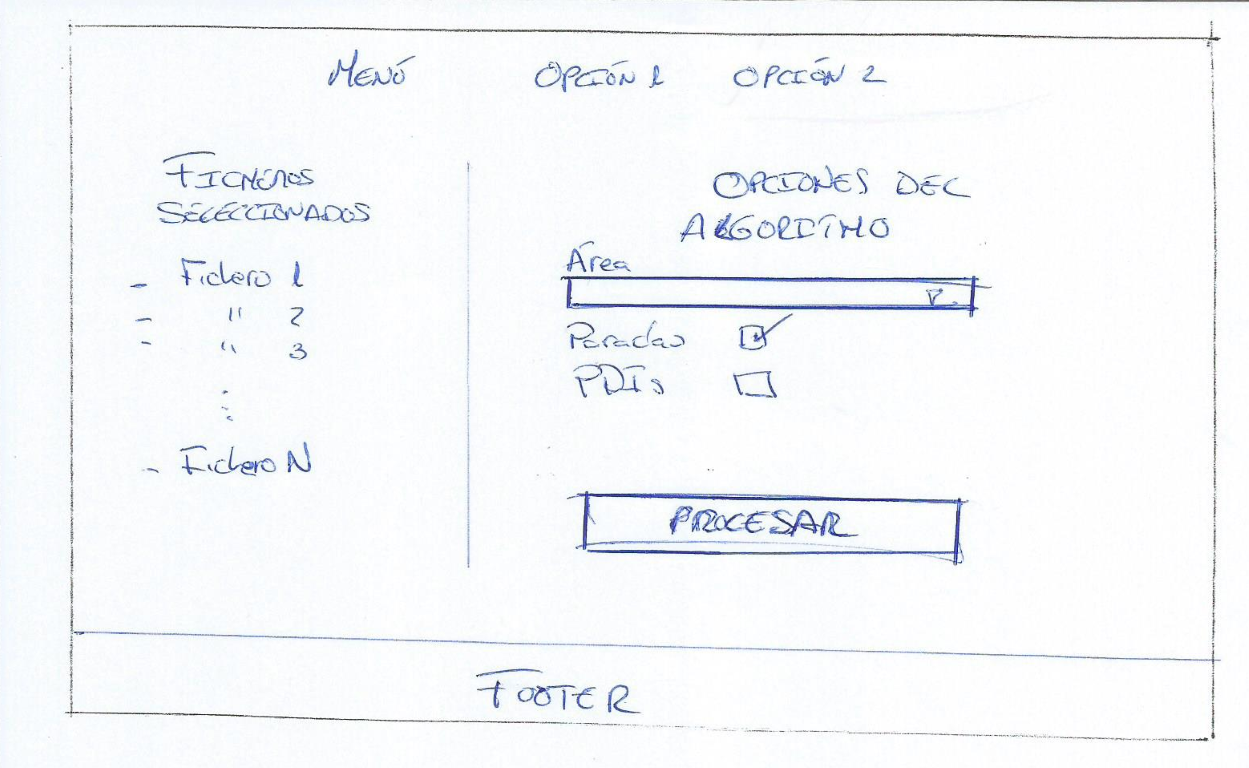 MENÚ OPCIÓN 1 OPCIÓN 2
FICHEROS
SELECCIONADOS
- Fichero 1
- " 2
- " 3
- Fichero N
OPCIONES DEL
ALGORITMO
Área
Paradas
PDIs
PROCESAR
FOOTER